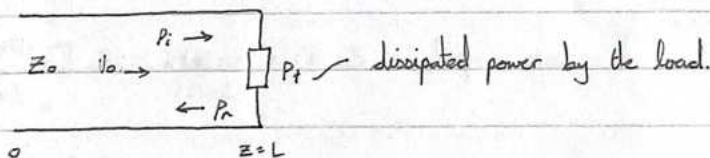 Pi →
Z₀ V₀ → Pt dissipated power by the load.
← Pr
0 z = L